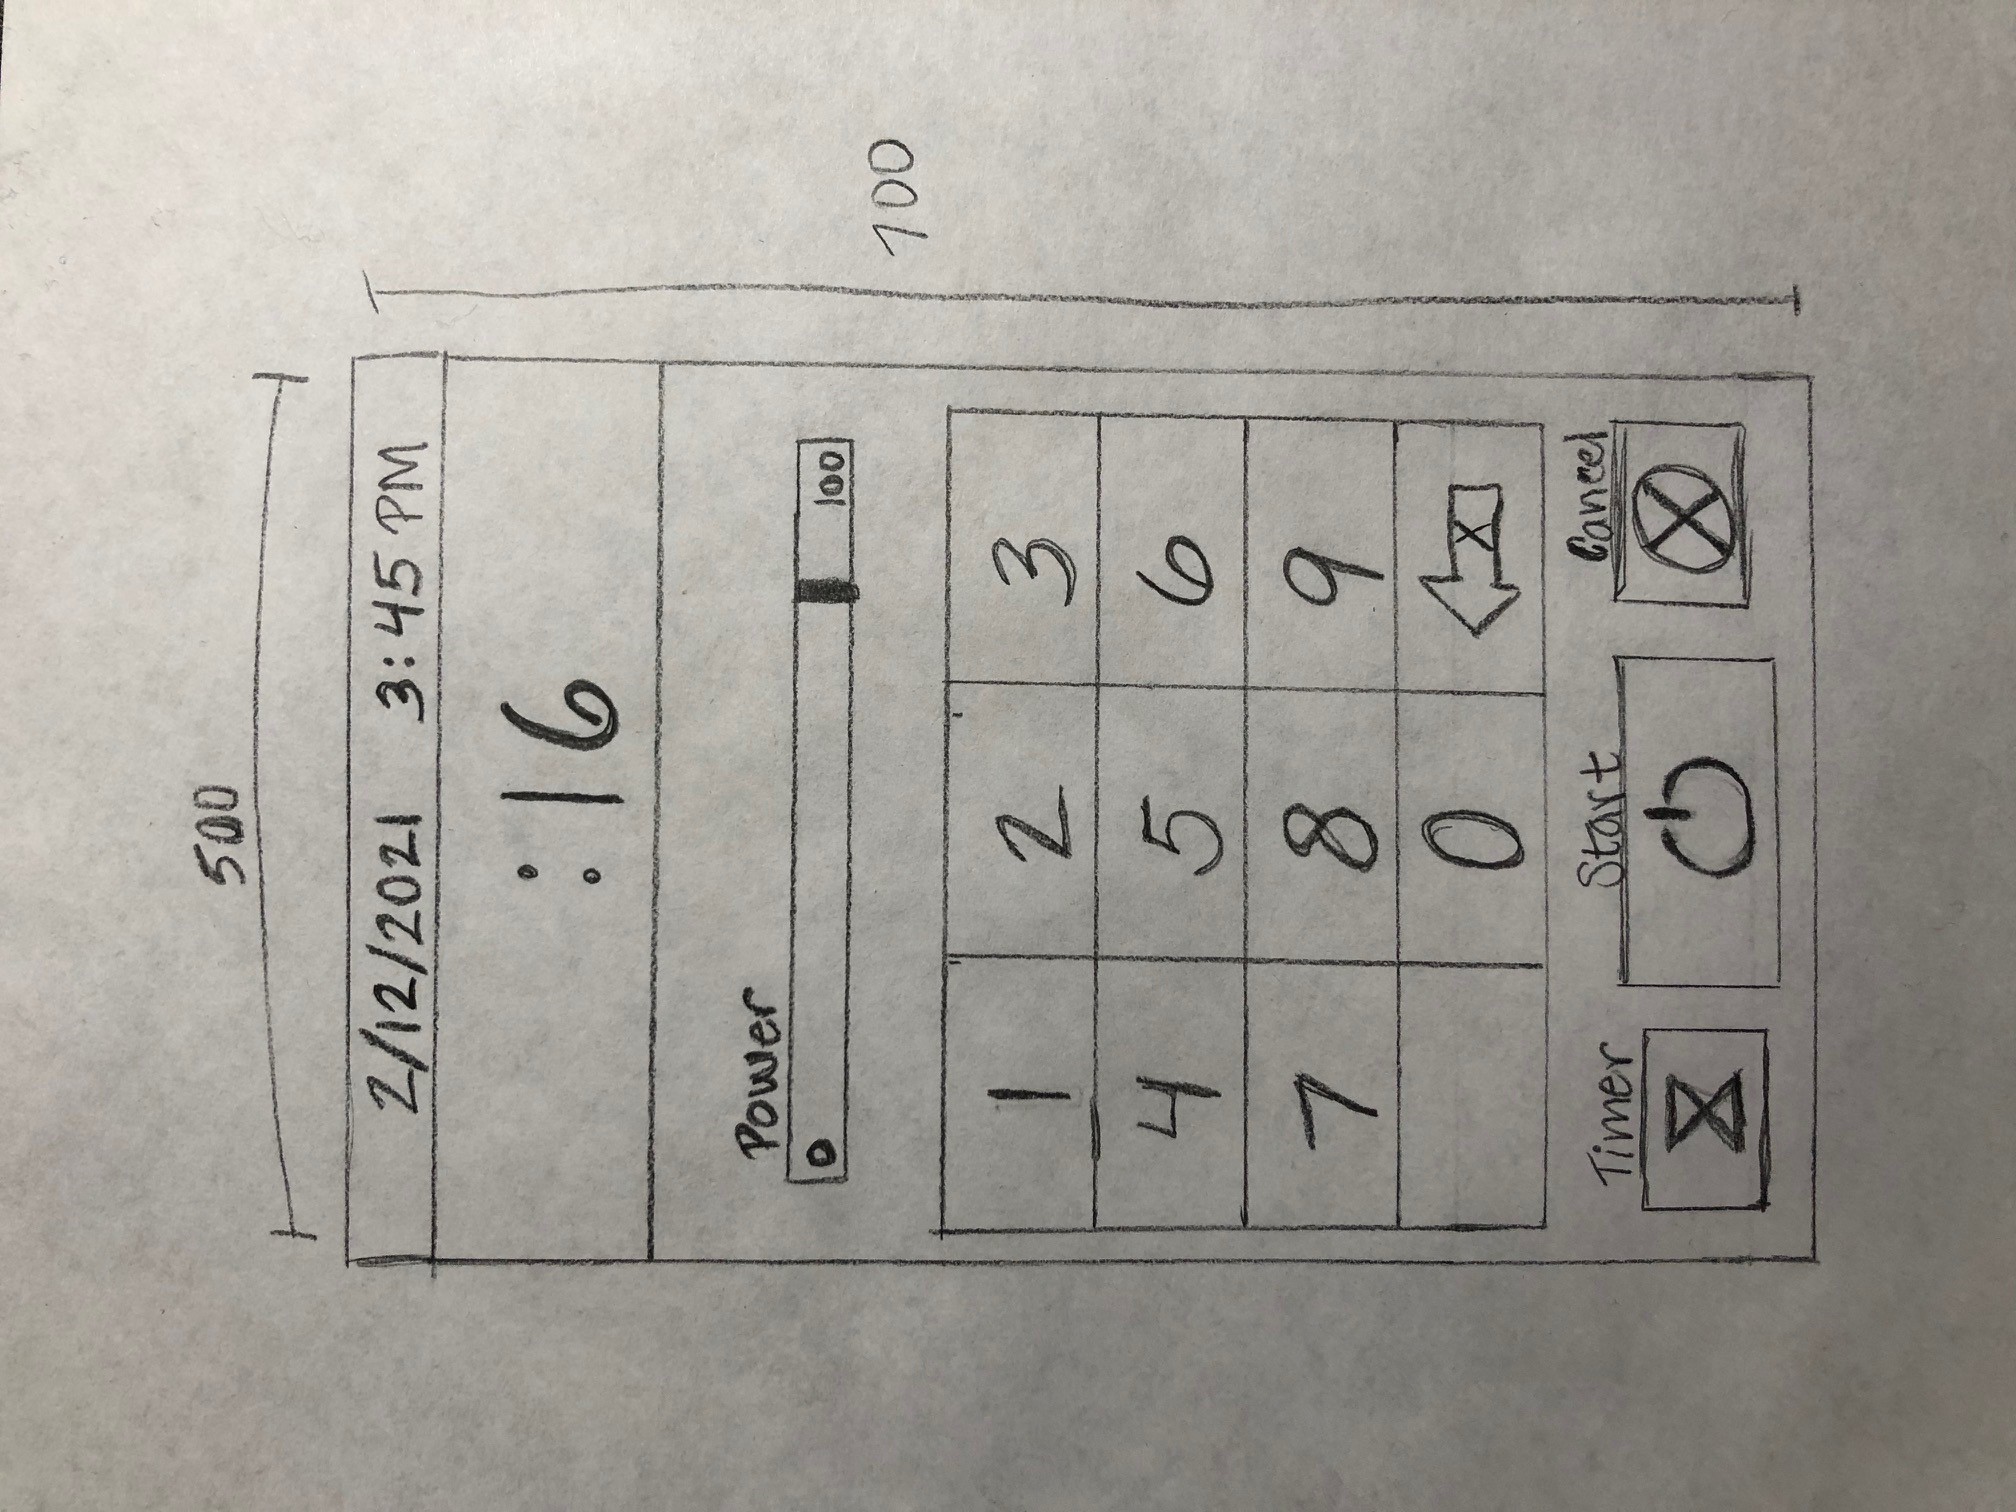 500
2/12/2021 3:45 PM
:16
700
Power
0 100
1 2 3
4 5 6
7 8 9
0 X
Timer Start Cancel